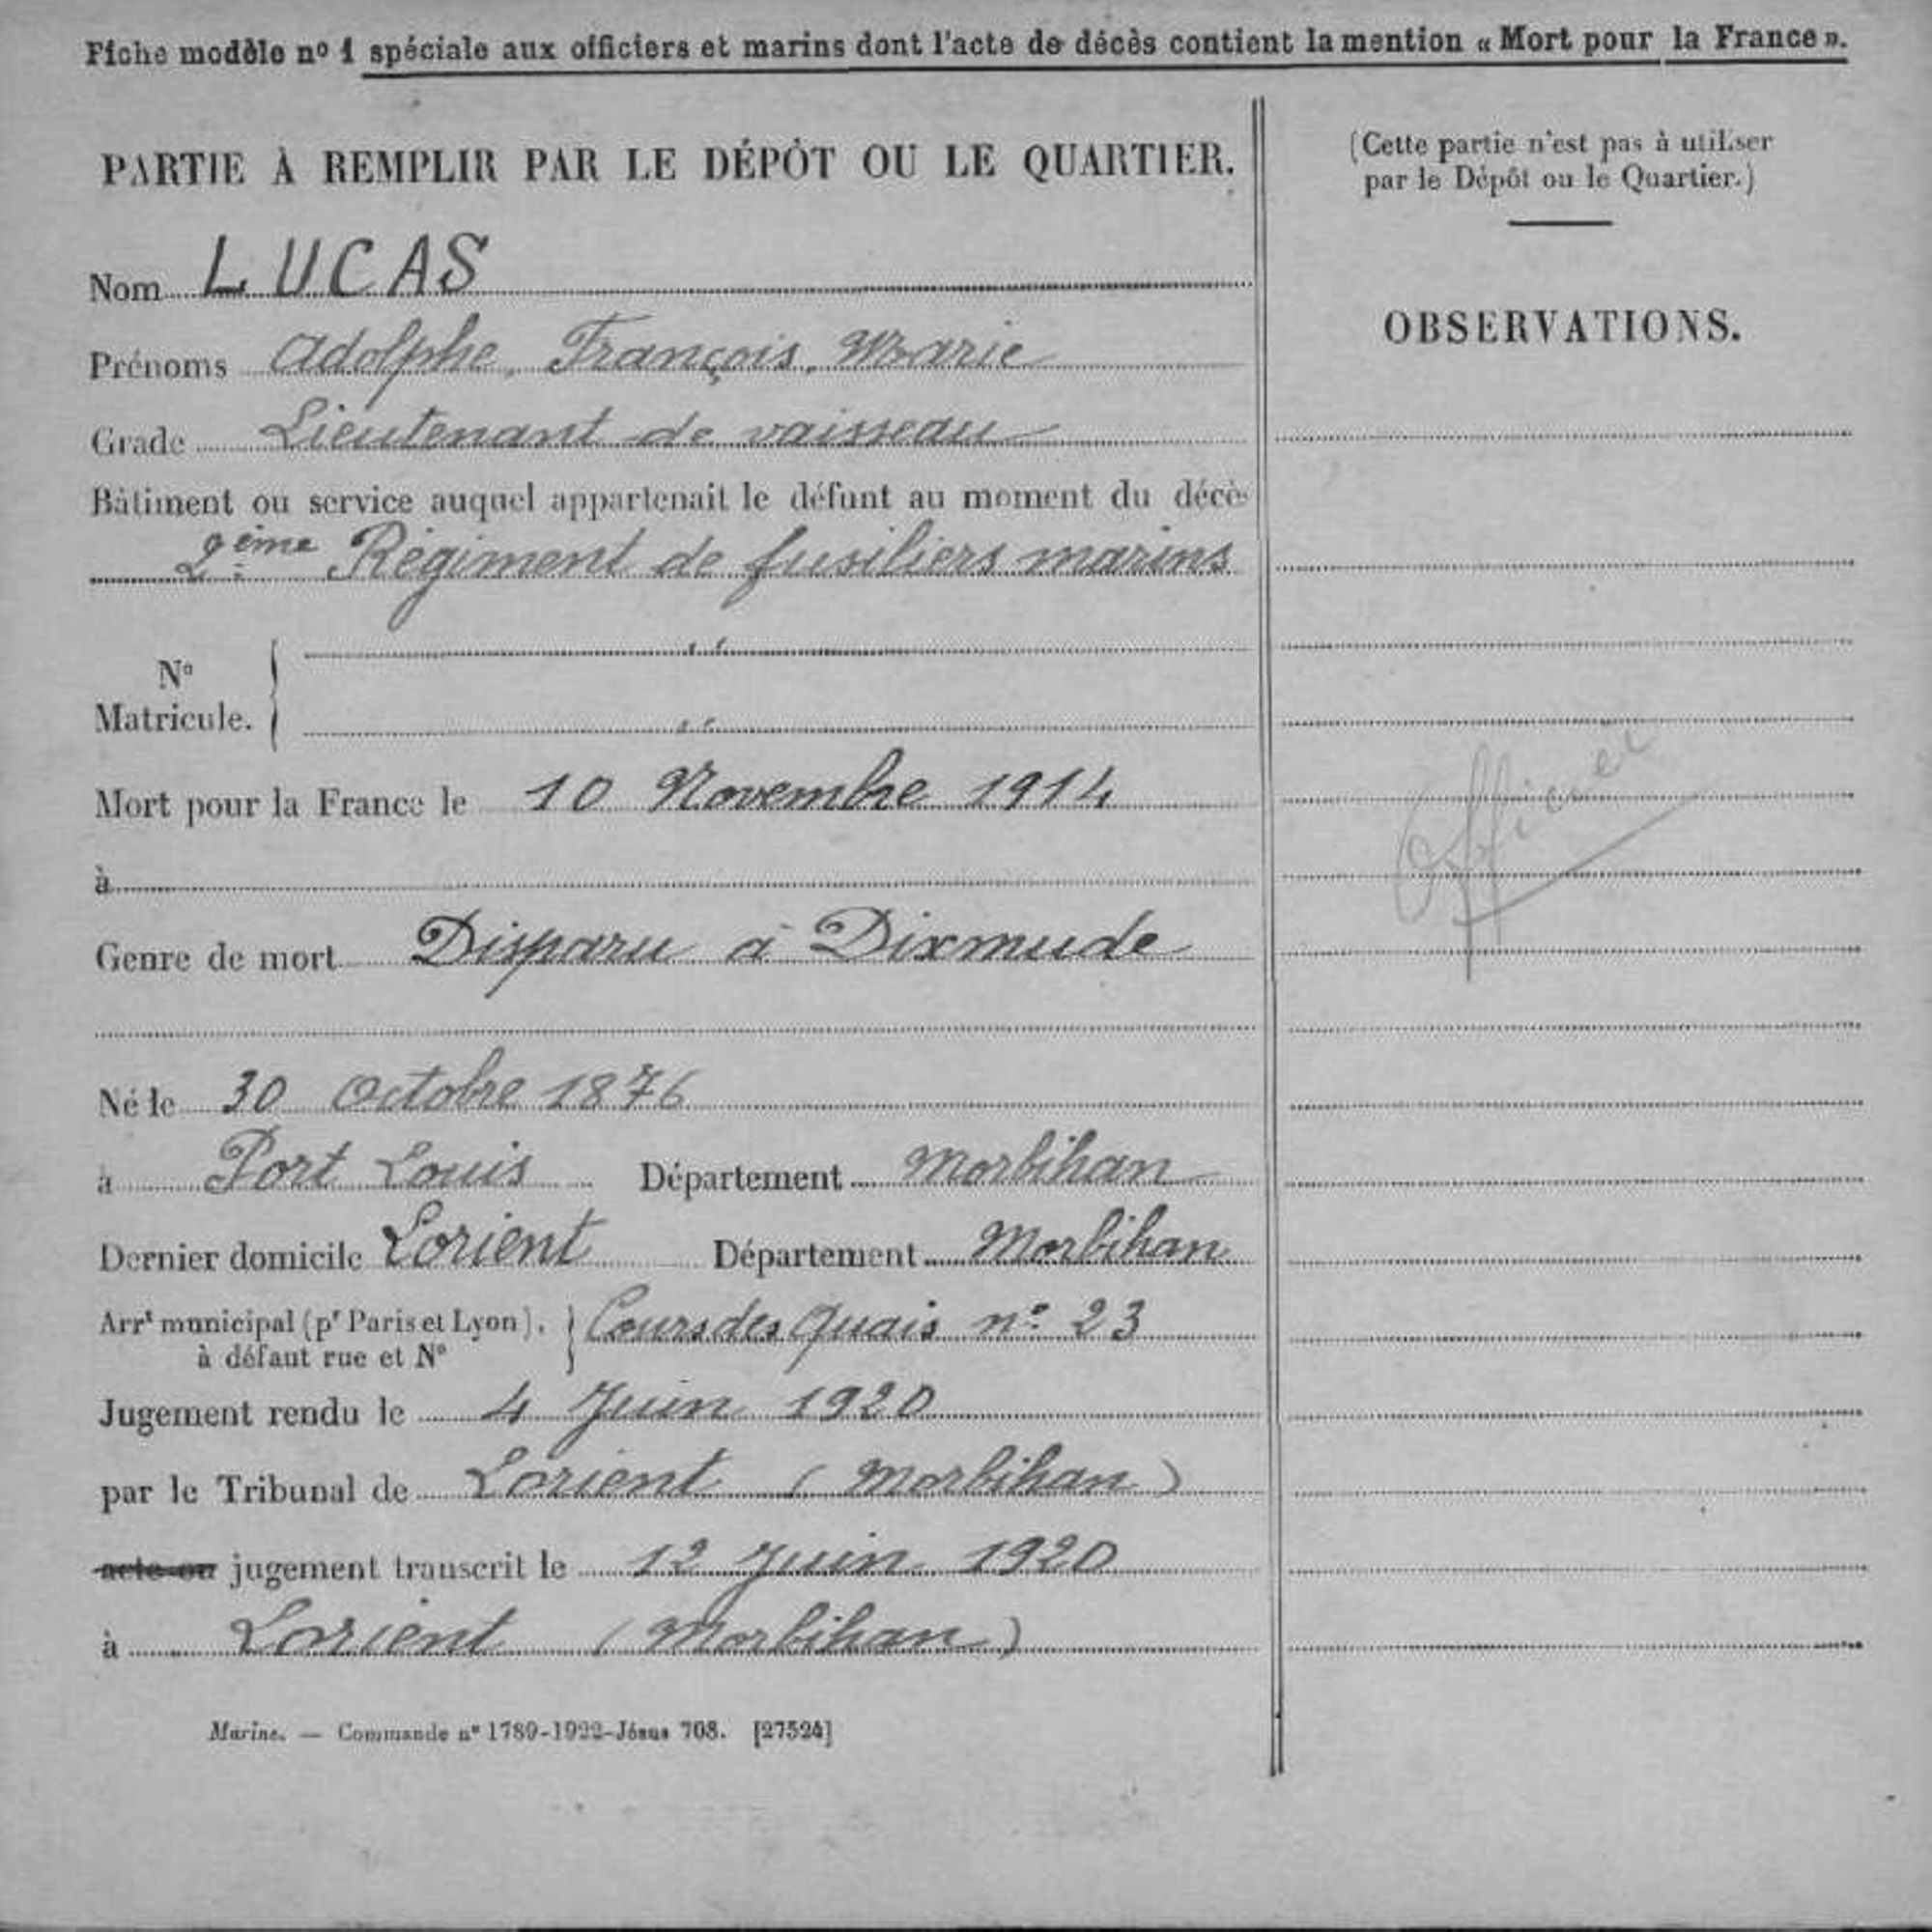 Fiche modèle nº 1 spéciale aux officiers et marins dont l'acte de décès contient la mention « Mort pour la France ».
PARTIE À REMPLIR PAR LE DÉPÔT OU LE QUARTIER.
Nom LUCAS
Prénoms Adolphe, François, Marie
Grade Lieutenant de vaisseau
Bâtiment ou service auquel appartenait le défunt au moment du décès
2ème Régiment de fusiliers marins
Nº
Matricule.
Mort pour la France le 10 Novembre 1914
à
Genre de mort Disparu à Dixmude
Né le 30 Octobre 1876
à Port Louis Département Morbihan
Dernier domicile Lorient Département Morbihan
Arrt municipal (pr Paris et Lyon), Cours des Quais nº 23
à défaut rue et Nº
Jugement rendu le 4 Juin 1920
par le Tribunal de Lorient (Morbihan)
acte ou jugement transcrit le 12 Juin 1920
à Lorient (Morbihan)
Marine. — Commande nº 1789-1922-Jésus 708. [27524]
(Cette partie n'est pas à utiliser
par le Dépôt ou le Quartier.)
OBSERVATIONS.
Officier